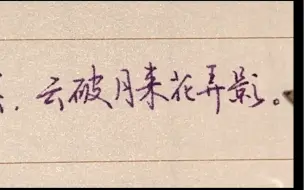 ，云破月来花弄影。